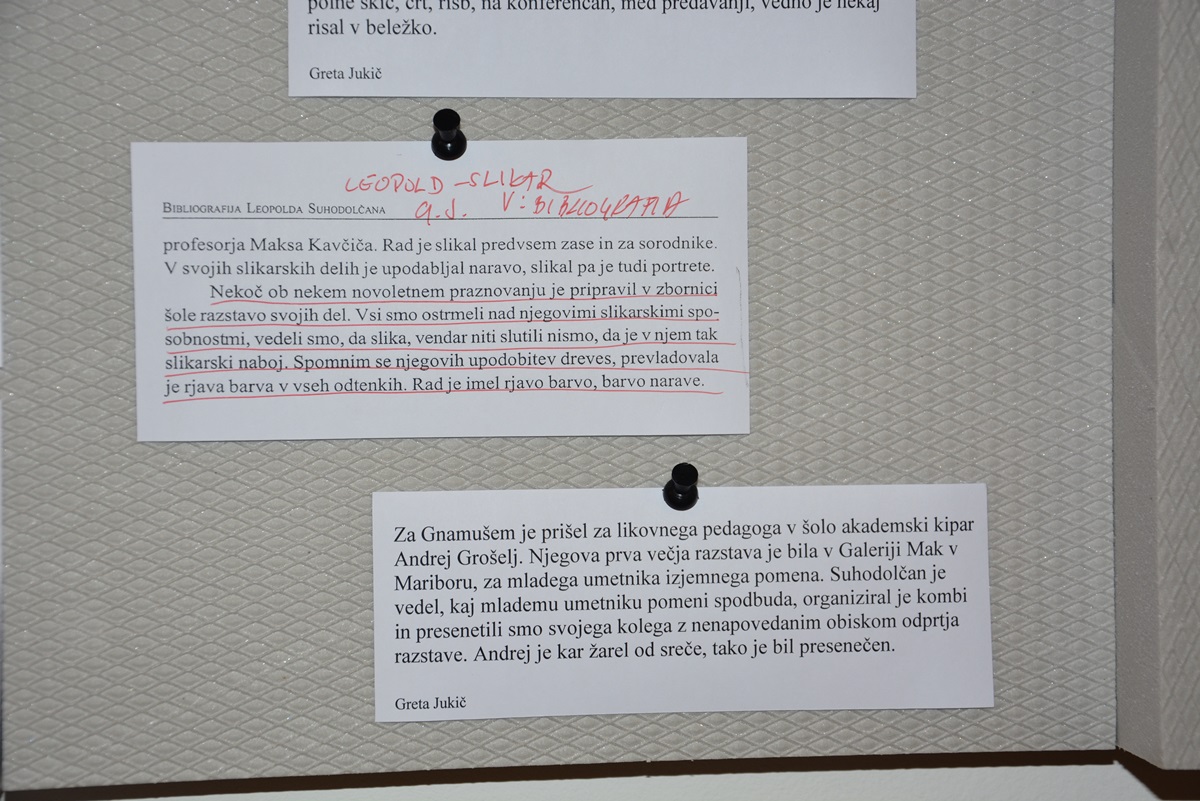 polne skic, črt, risb, na konferencah, med predavanji, vedno je nekaj
risal v beležko.
Greta Jukič
LEOPOLD - SLIKAR
G.J. V: BIBLIOGRAFIJA
BIBLIOGRAFIJA LEOPOLDA SUHODOLČANA
profesorja Maksa Kavčiča. Rad je slikal predvsem zase in za sorodnike.
V svojih slikarskih delih je upodabljal naravo, slikal pa je tudi portrete.
Nekoč ob nekem novoletnem praznovanju je pripravil v zbornici
šole razstavo svojih del. Vsi smo ostrmeli nad njegovimi slikarskimi spo-
sobnostmi, vedeli smo, da slika, vendar niti slutili nismo, da je v njem tak
slikarski naboj. Spomnim se njegovih upodobitev dreves, prevladovala
je rjava barva v vseh odtenkih. Rad je imel rjavo barvo, barvo narave.
Za Gnamušem je prišel za likovnega pedagoga v šolo akademski kipar
Andrej Grošelj. Njegova prva večja razstava je bila v Galeriji Mak v
Mariboru, za mladega umetnika izjemnega pomena. Suhodolčan je
vedel, kaj mlademu umetniku pomeni spodbuda, organiziral je kombi
in presenetili smo svojega kolega z nenapovedanim obiskom odprtja
razstave. Andrej je kar žarel od sreče, tako je bil presenečen.
Greta Jukič